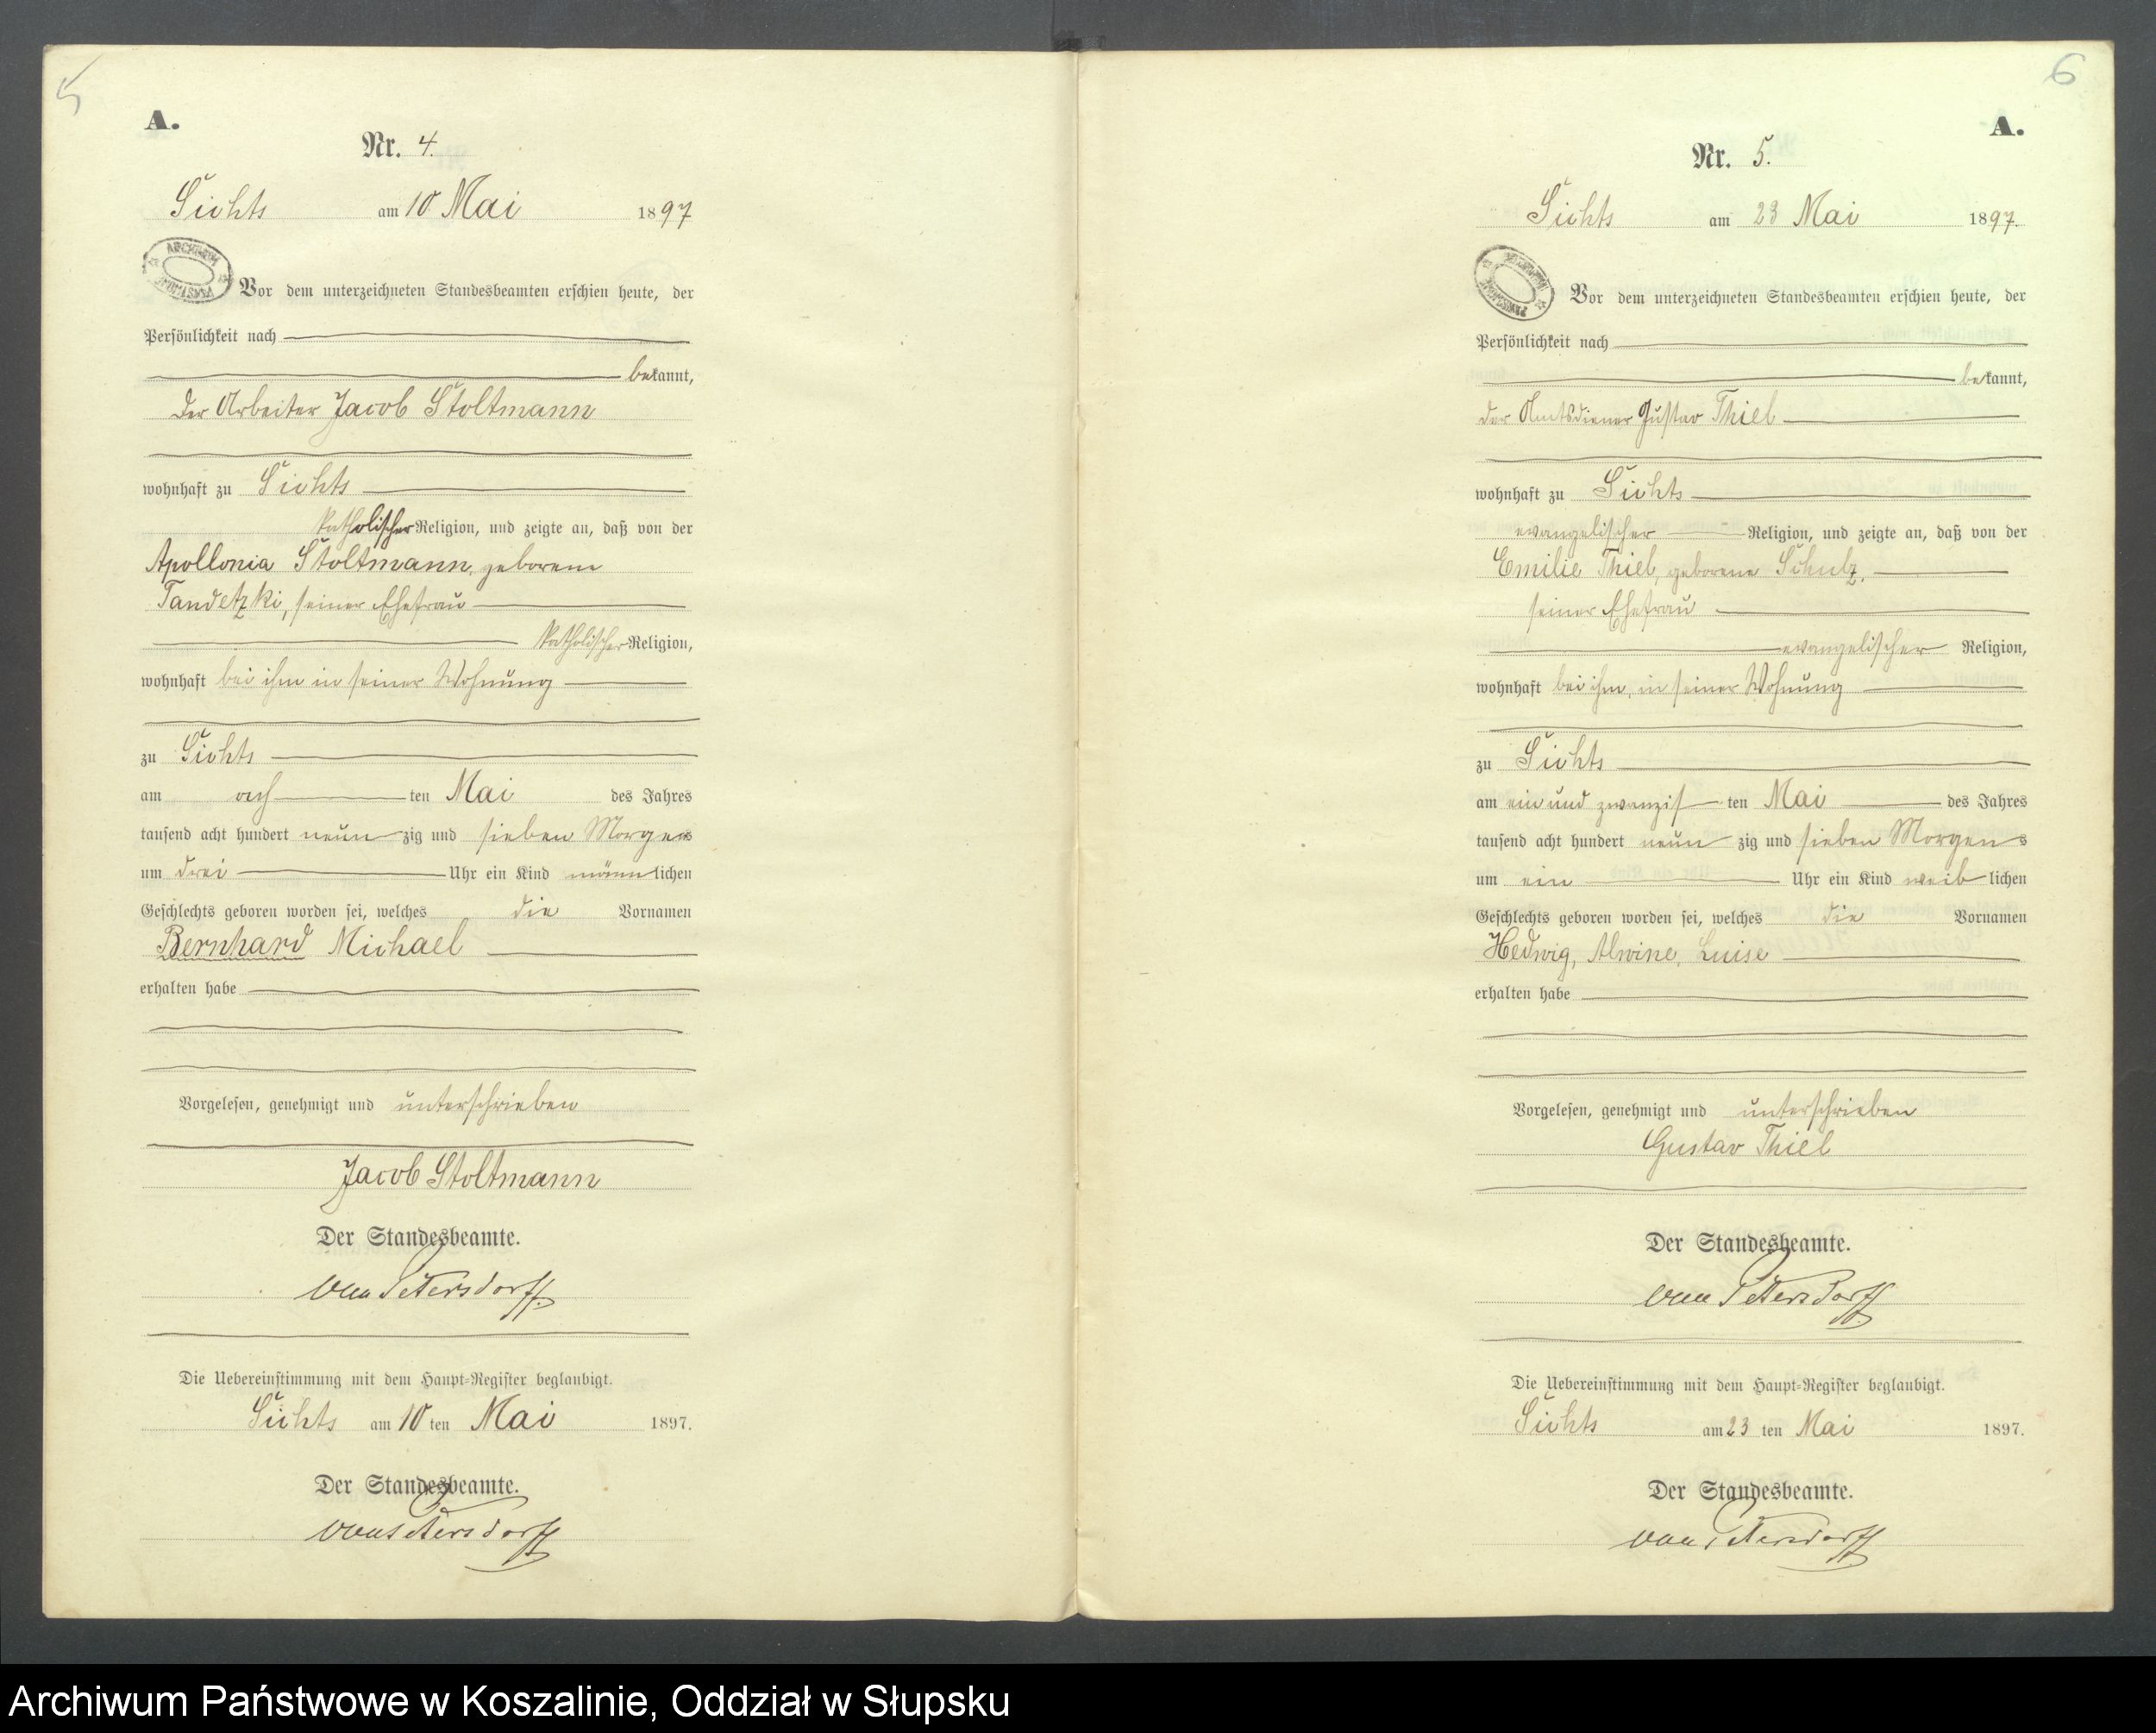 5
A.
Nr. 4.
Sichts am 10 Mai 1897
ARCHIWUM
Vor dem unterzeichneten Standesbeamten erschien heute, der
Persönlichkeit nach
bekannt,
der Arbeiter Jacob Stoltmann
wohnhaft zu Sichts
katholischer Religion, und zeigte an, daß von der
Apollonia Stoltmann, geborene
Tandetzki, seiner Ehefrau
katholischer Religion,
wohnhaft bei ihm in seiner Wohnung
zu Sichts
am ach ten Mai des Jahres
tausend acht hundert neun zig und sieben Morgens
um drei Uhr ein Kind männlichen
Geschlechts geboren worden sei, welches die Vornamen
Bernhard Michael
erhalten habe
Vorgelesen, genehmigt und unterschrieben
Jacob Stoltmann
Der Standesbeamte.
von Petersdorff.
Die Uebereinstimmung mit dem Haupt-Register beglaubigt.
Sichts am 10 ten Mai 1897.
Der Standesbeamte.
von Petersdorff
6
A.
Nr. 5.
Sichts am 23 Mai 1897.
Vor dem unterzeichneten Standesbeamten erschien heute, der
Persönlichkeit nach
bekannt,
der Amtsdiener Gustav Thiel
wohnhaft zu Sichts
evangelischer Religion, und zeigte an, daß von der
Emilie Thiel, geborene Schulz,
seiner Ehefrau
evangelischer Religion,
wohnhaft bei ihm, in seiner Wohnung
zu Sichts
am ein und zwanzigs ten Mai des Jahres
tausend acht hundert neun zig und sieben Morgens
um ein Uhr ein Kind weib lichen
Geschlechts geboren worden sei, welches die Vornamen
Hedwig, Alwine, Luise
erhalten habe
Vorgelesen, genehmigt und unterschrieben
Gustav Thiel
Der Standesbeamte.
von Petersdorff.
Die Uebereinstimmung mit dem Haupt-Register beglaubigt.
Sichts am 23 ten Mai 1897.
Der Standesbeamte.
von Petersdorff
Archiwum Państwowe w Koszalinie, Oddział w Słupsku